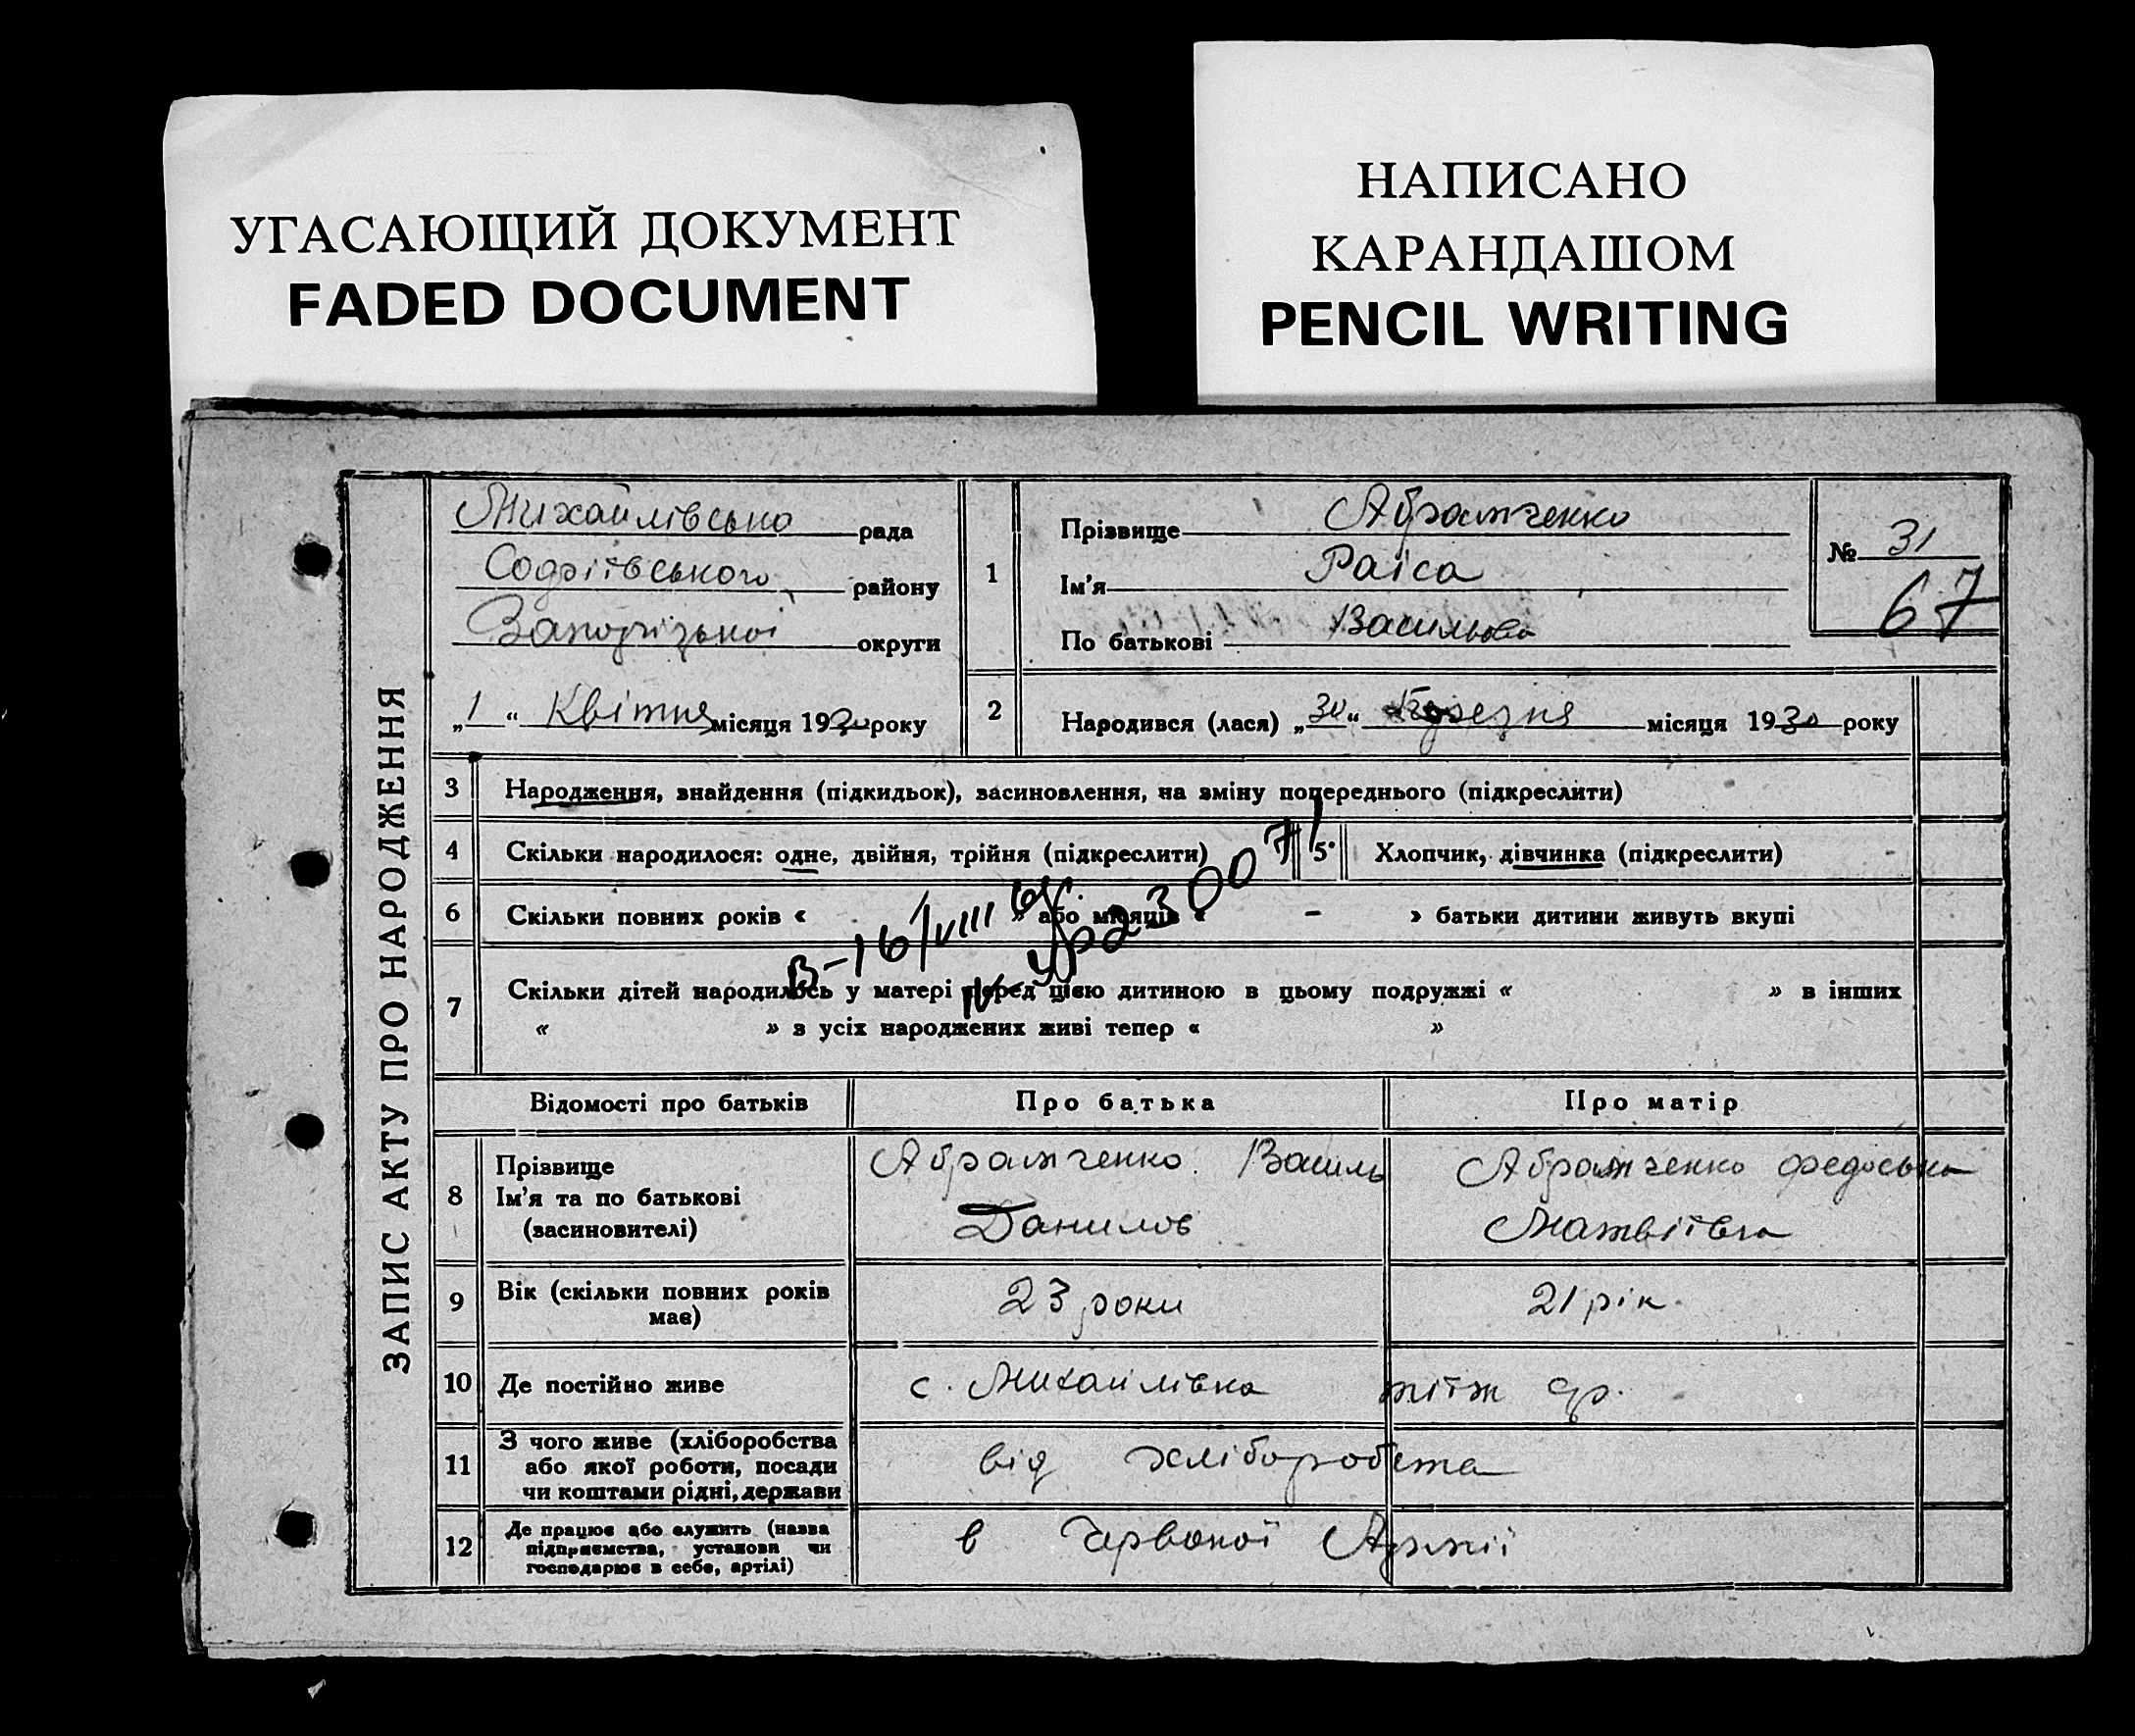 УГАСАЮЩИЙ ДОКУМЕНТ
FADED DOCUMENT
НАПИСАНО
КАРАНДАШОМ
PENCIL WRITING
ЗАПИС АКТУ ПРО НАРОДЖЕННЯ
Михайлівська рада
Софіївського району
Запорізької округи
„1“ Квітня місяця 1930 року
1
Прізвище Абрамченко
Ім'я Раіса
По батькові Васильова
№ 31
67
2 Народився (лася) „30“ Березня місяця 1930 року
3 Народження, знайдення (підкидьок), засиновлення, на зміну попереднього (підкреслити)
4 Скільки народилося: одне, двійня, трійня (підкреслити) 5 Хлопчик, дівчинка (підкреслити)
6 Скільки повних років « » або місяців « – » батьки дитини живуть вкупі
7 Скільки дітей народилось у матері перед цією дитиною в цьому подружжі « » в інших
« » з усіх народжених живі тепер « »
Відомості про батьків Про батька Про матір
8 Прізвище Ім'я та по батькові (засиновителі) Абрамченко Василь Данилов Абрамченко Федоська Матвіївна
9 Вік (скільки повних років має) 23 роки 21 рік.
10 Де постійно живе с. Михайлівка
11 З чого живе (хліборобства або якої роботи, посади чи коштами рідні, держави від хліборобства
12 Де працює або служить (назва підприємства, установи чи господарює в себе, артілі) в Червоної Армії